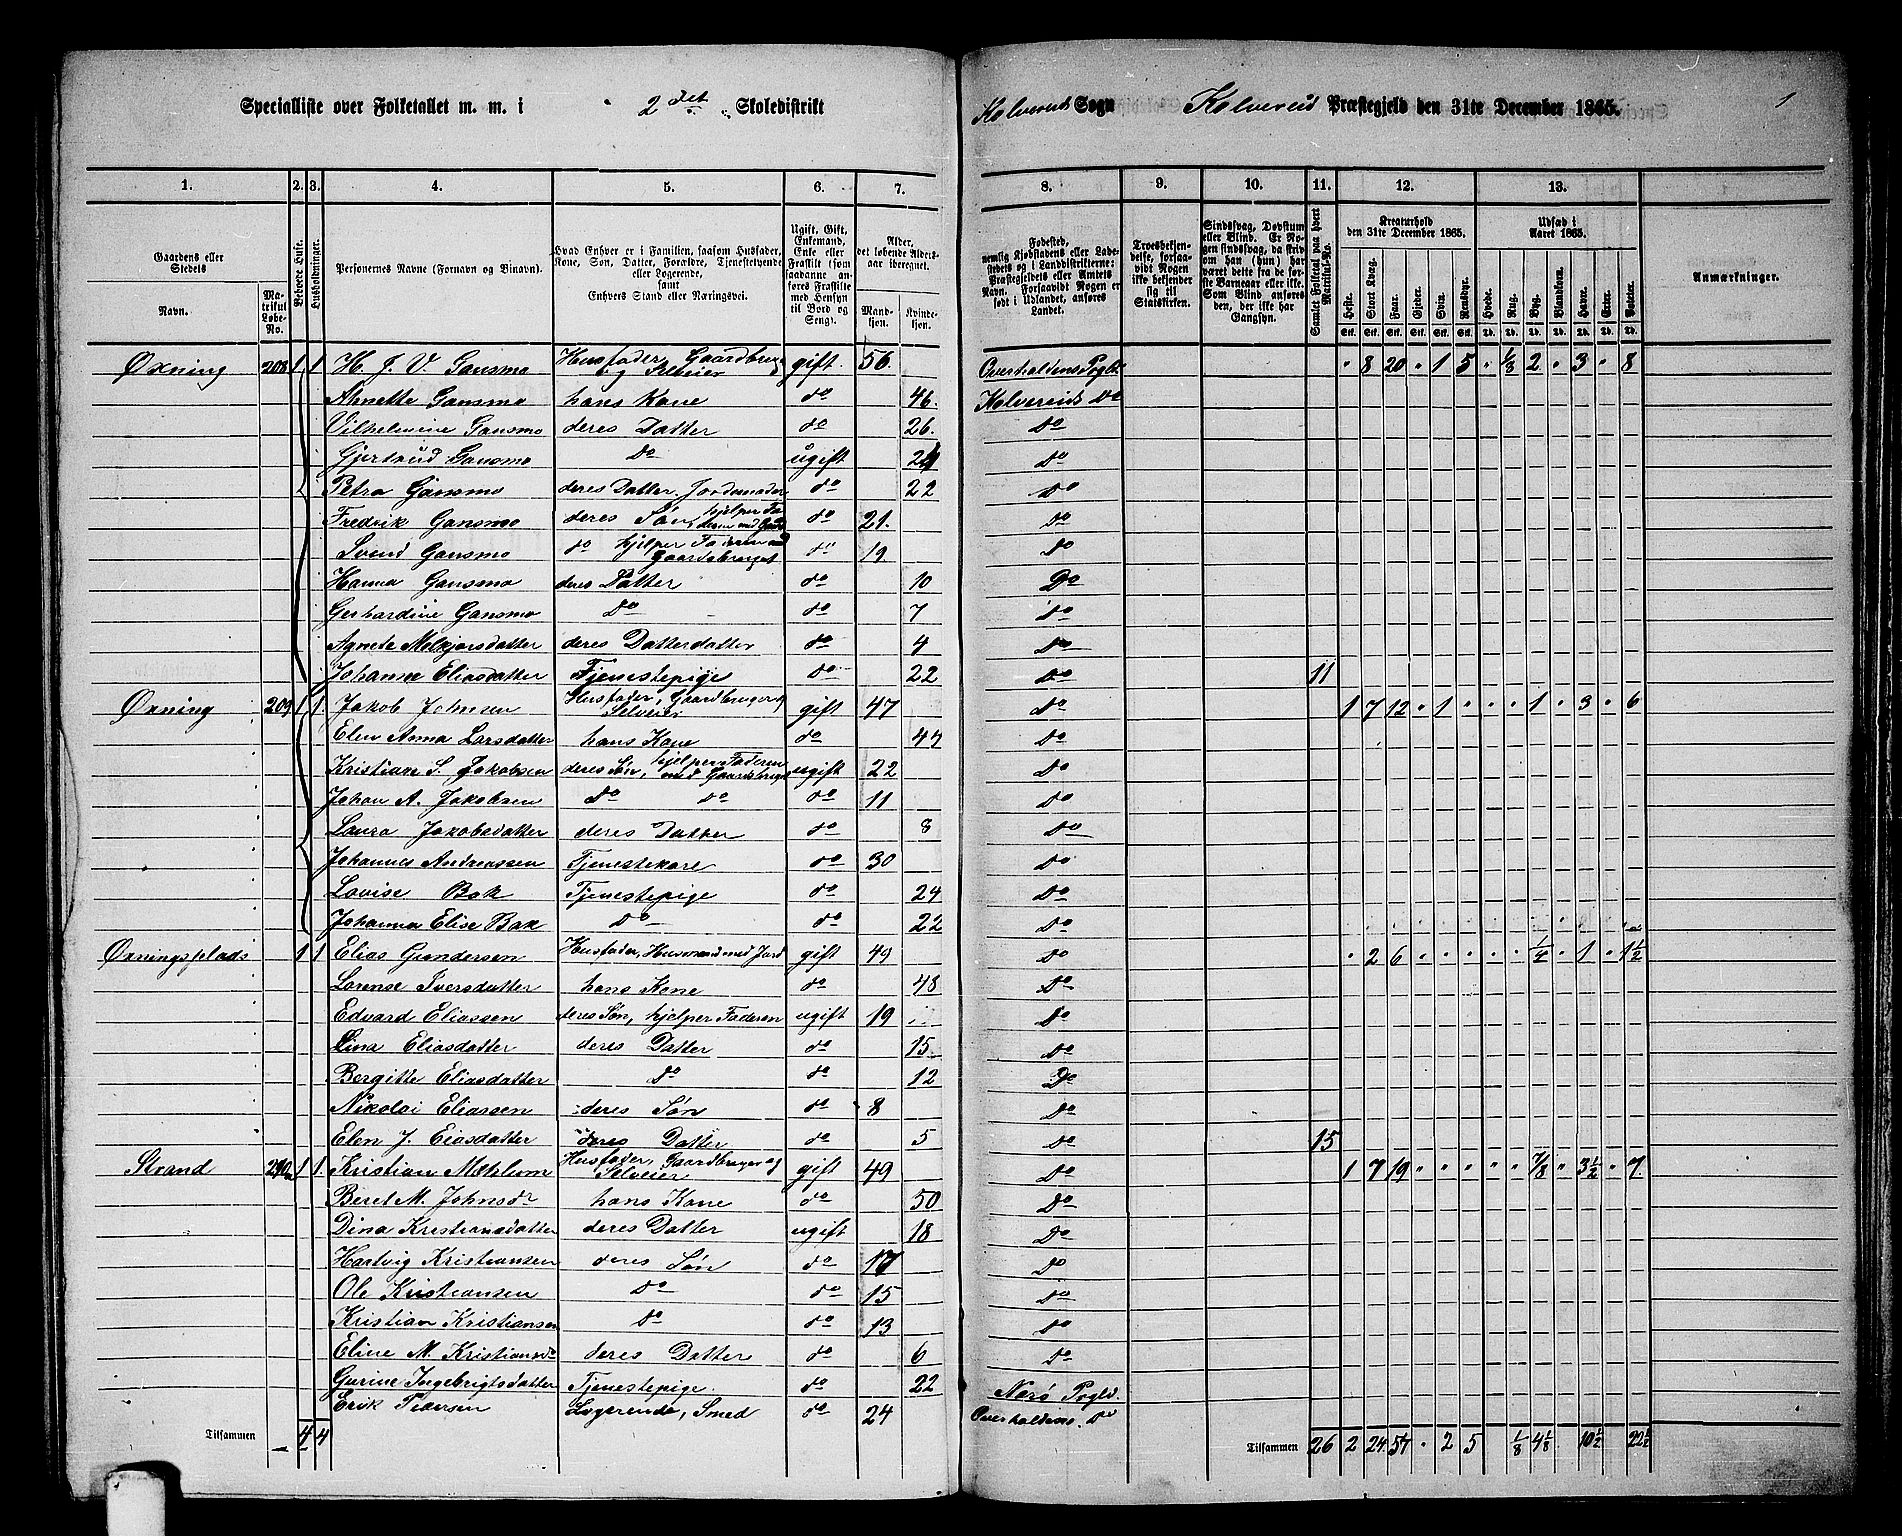 Specialliste over Folketallet m. m. i 2det Skoledistrikt Kolvereid Sogn Kolvereid Præstegjeld den 31te December 1865. 1
1. 2. 3. 4. 5. 6. 7. 8. 9. 10. 11. 12. 13.
Gaardens eller Stedets
Navn.
Matrikul Løbe-No.
Beboede Huse.
Husholdninger.
Personernes Navne (Fornavn og Binavn).
Hvad Enhver er i Familien, saasom Husfader, Kone, Søn, Datter, Forældre, Tjenestetyende eller Logerende, samt Enhvers Stand eller Næringsvei.
Ugift, Gift, Enkemand, Enke eller Fraskilt (som saadanne anføres Fraskilte med Hensyn til Bord og Seng).
Alder, det løbende Aldersaar iberegnet.
Mandkjøn.
Kvindekjøn.
Fødested, nemlig Kjøbstadens eller Ladestedets og i Landdistrikterne: Præstegjeldets eller Amtets Navn. Forsaavidt Nogen er født i Udlandet, anføres Landet.
Troesbekjendelse, forsaavidt Nogen ikke bekjender sig til Statskirken.
Sindssvag, Døvstum eller Blind. Er Nogen sindssvag, da skrives om han (hun) har været dette fra de første Barneaar eller ikke. Som Blind anføres den, der ikke har Gangsyn.
Samlet Folketal paa hvert Matrikul-No.
Kreaturhold den 31te December 1865.
Heste. Stort Kvæg. Faar. Gjeder. Svin. Rensdyr.
Udsæd i Aaret 1865.
Hvede. Rug. Byg. Blandkorn. Havre. Erter. Poteter.
Anmærkninger.
Øxning 208 1 1 H. J. V. Gansmo Husfader Gaardbrug og Selveier gift. 56. Overhaldens Pgld " 8 20 " 1 5 " 1/8 2 " 3 " 8
Annette Gansmo hans Kone do 46. Kolvereids Do
Vilhelmine Gansmo deres Datter do 26. Do
Gjertrud Gansmo Do ugift 24 Do
Petra Gansmo deres Datter, Jordemoder do 22 Do
Fredrik Gansmo deres Søn, hjelper Faderen med Gaard do 21. Do
Svend Gansmo do hjelper Faderen med Gaardsbruget do 19. Do
Hanna Gansmo deres Datter do 10 Do
Gerhardine Gansmo Do do 7 Do
Agnete Melkjorsdatter deres Datterdatter do 4 Do
Johanne Eliasdatter Tjenestepige do 22 Do 11
Øxning 209 1 1 Jakob Johnsen Husfader, Gaardbruger og Selveier gift 47 Do 1 7 12 " 1 " " " 1 " 3 " 6
Elen Anna Larsdatter hans Kone do 47 Do
Kristian S. Jakobsen deres Søn, hjelper Faderen med Gaardsbruget ugift 22 Do
Johan A. Jakobsen Do Do do 11 Do
Laura Jakobsdatter deres Datter do 8 Do
Johannes Andreassen Tjenestekare do 30 Do
Lovise Bak Tjenestepige do 24 Do
Johanna Elise Bak Do do 22 Do
Øxningsplads 1 1 Elias Gundersen Husfader, Husmand med Jord gift 49 Do " 2 6 " " " " " 1/4 " 1 " 1 1/2
Lorense Iversdatter hans Kone do 48 Do
Edvard Eliassen deres Søn, hjelper Faderen ugift 19 Do
Lina Eliasdatter deres Datter do 15. Do
Bergitte Eliasdatter Do do 12 Do
Nikolai Eliassen deres Søn do 8 Do
Elen J. Eiasdatter deres Datter do 5 Do 15
Strand 210a 1 1 Kristian Mehlum Husfader, Gaardbruger og Selveier gift 49 Do 1 7 19 " " " " " 7/8 " 3 1/2 " 7.
Beret M. Johnsdr hans Kone do 50 Do
Dina Kristiansdatter deres Datter ugift 18 Do
Hartvig Kristiansen deres Søn do 17 Do
Ole Kristiansen Do do 15 Do
Kristian Kristiansen Do do 13 Do
Eline M. Kristiansdr deres Datter do 6 Do
Gurine Ingebrigtsdatter Tjenestepige. do 22 Nærø Pgld.
Erik Pedersen Logerende, Smed do 24 Overhaldens. Do
Tilsammen 4 4 Tilsammen 26 2 24 57 " 2 5 1/8 4 1/8 10 1/2 22 1/2